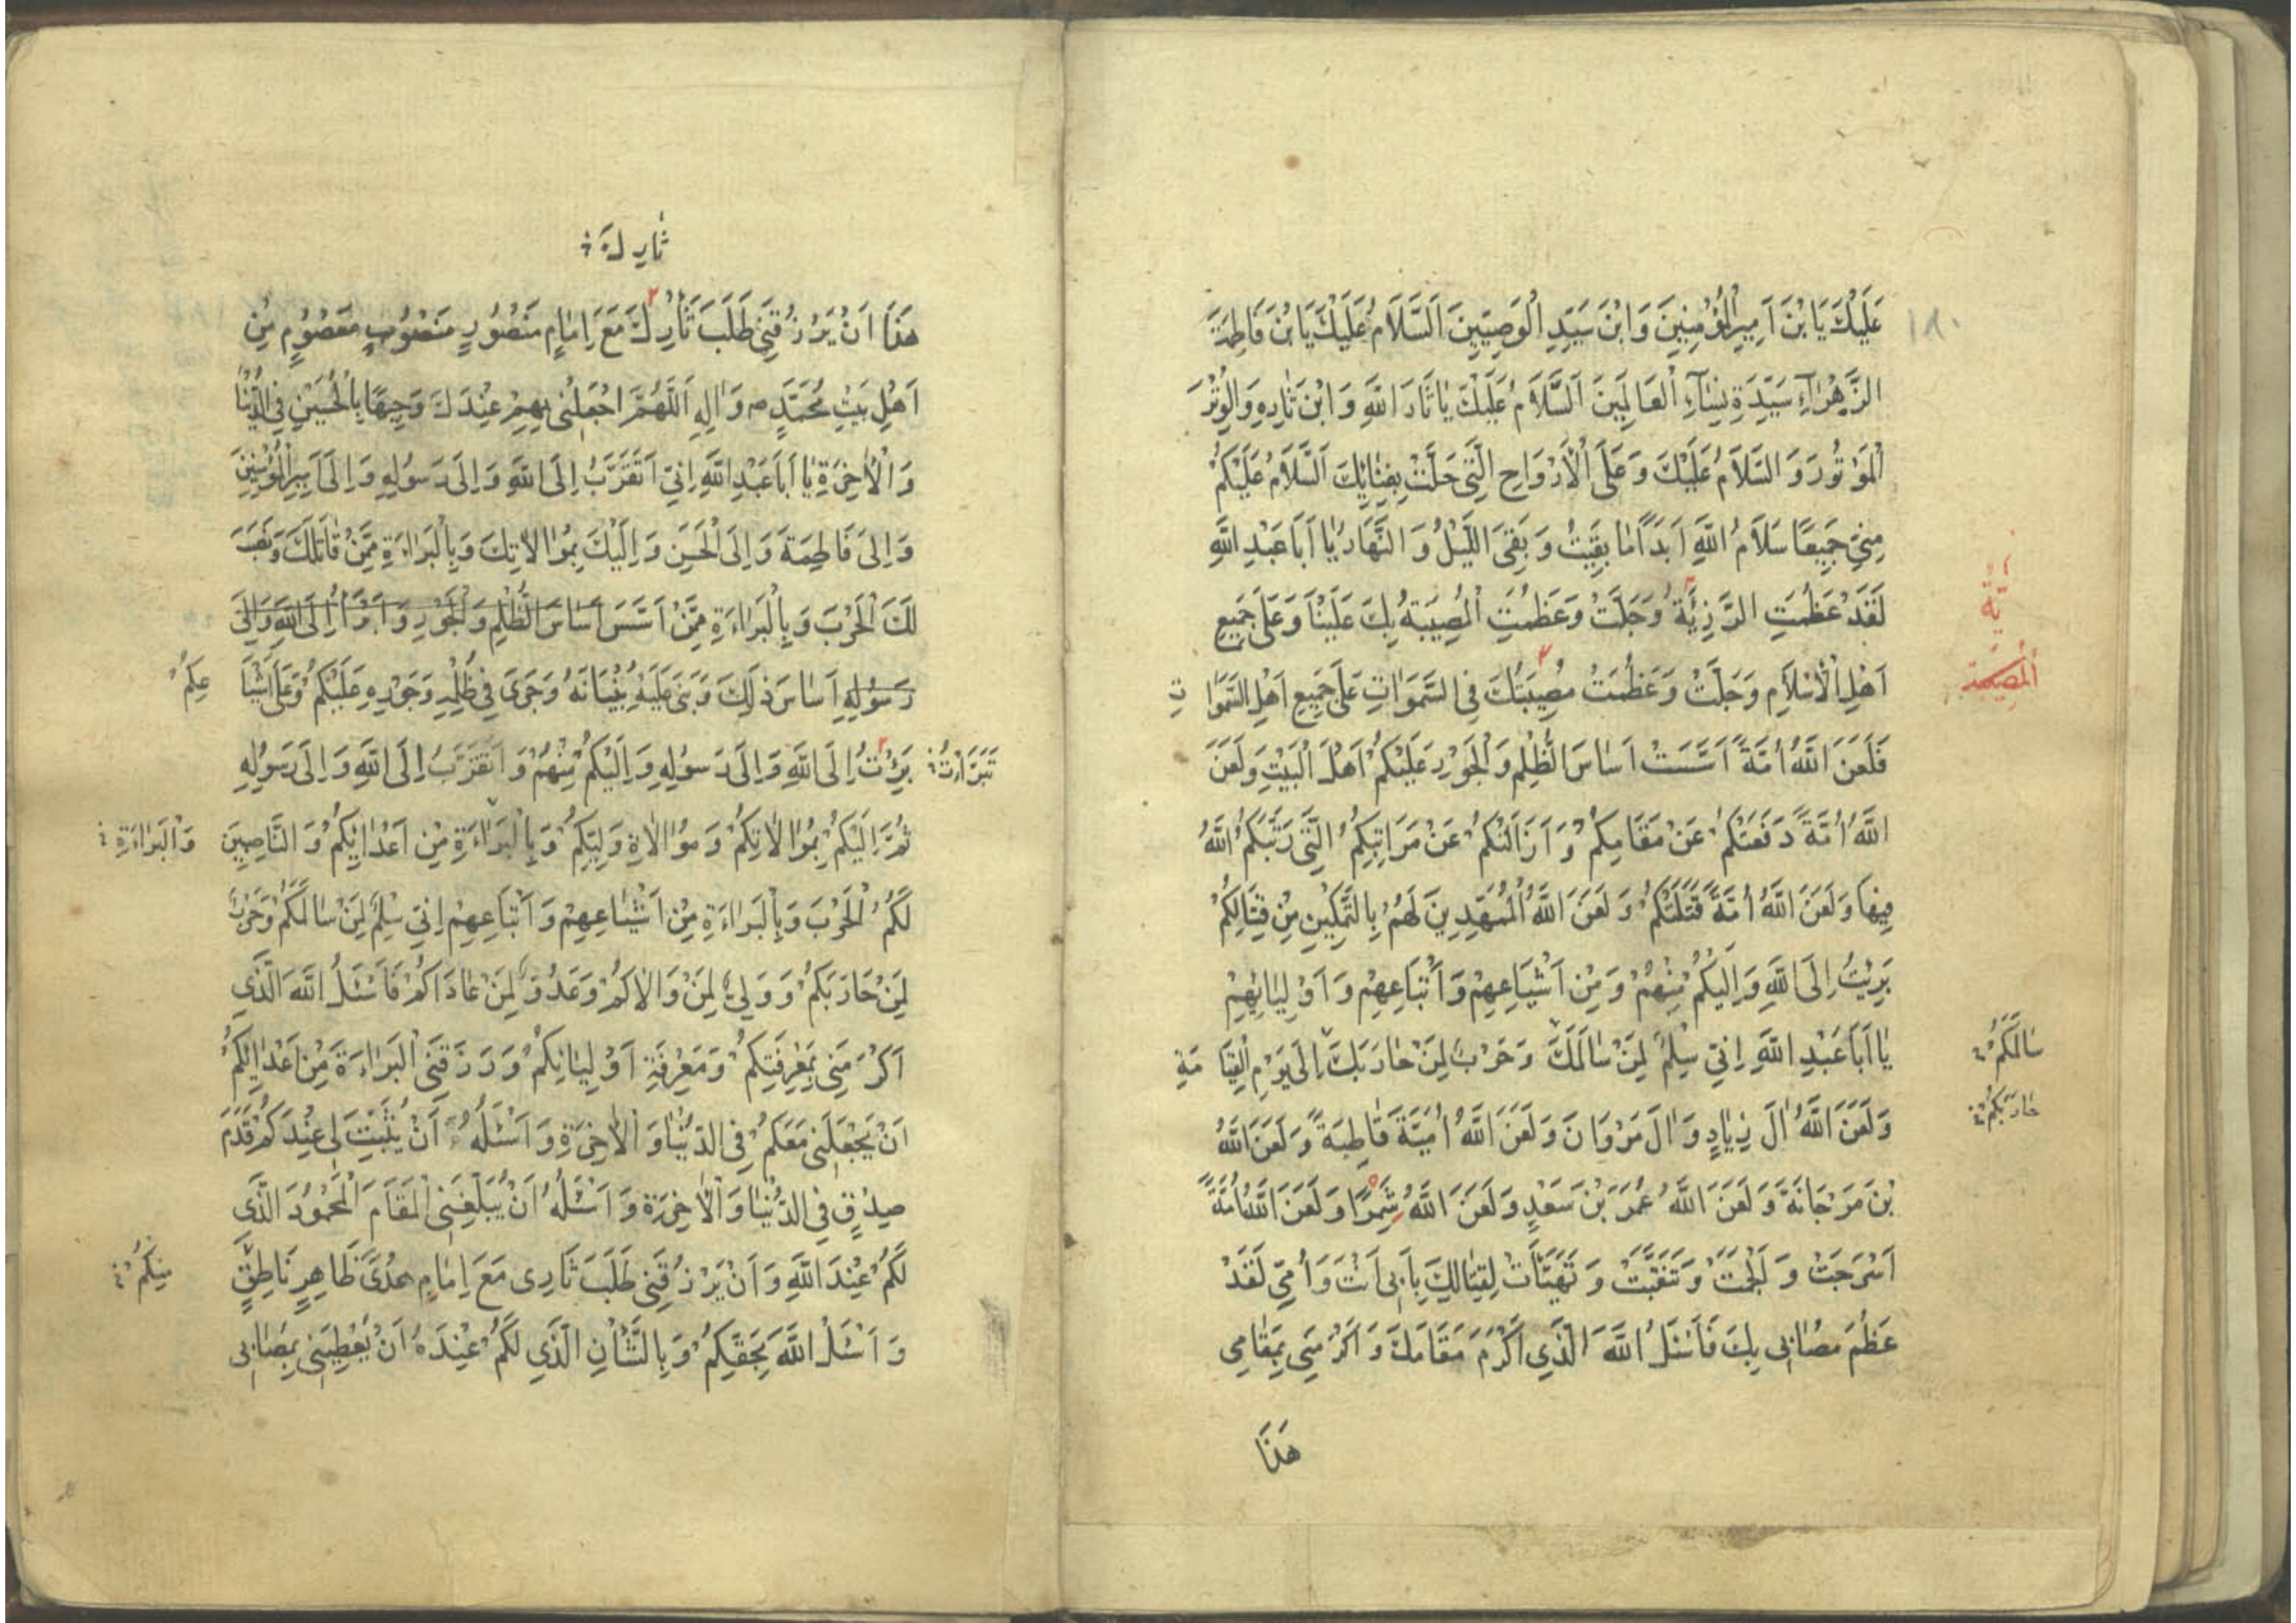 ١٨٠
عَلَيْكَ يَا بْنَ اَمِيرِ الْمُؤْمِنِينَ وَابْنَ سَيِّدِ الْوَصِيّينَ اَلسَّلَامُ عَلَيْكَ يَا بْنَ فَاطِمَةَ
الزَّهْرٰاءِ سَيِّدَةِ نِسٰاءِ الْعٰالَمِينَ اَلسَّلَامُ عَلَيْكَ يٰا ثَارَ اللّٰهِ وَابْنَ ثٰارِهِ وَالْوِتْرَ
الْمَوْتُورَ وَ السَّلَامُ عَلَيْكَ وَ عَلَى الْأَرْوَاحِ الَّتِي حَلَّتْ بِفِنٰائِكَ اَلسَّلَامُ عَلَيْكُمْ
مِنّي جَمِيعًا سَلَامُ اللّٰهِ اَبَدًا مٰا بَقِيتُ وَ بَقِيَ اللَّيْلُ وَ النَّهَارُ يٰا اَبَا عَبْدِ اللّٰهِ
لَقَدْ عَظُمَتِ الرَّزِيَّةُ وَجَلَّتْ وَعَظُمَتِ الْمُصِيبَةُ بِكَ عَلَيْنَا وَعَلَى جَمِيعِ
يَّة
الْمُصِيبَة
اَهْلِ الْأِسْلَامِ وَجَلَّتْ وَ عَظُمَتْ مُصِيبَتُكَ فِي السَّمَوَاتِ عَلَى جَمِيعِ اَهْلِ السَّمَوٰاتِ
فَلَعَنَ اللّٰهُ اُمَّةً اَسَّسَتْ اَسٰاسَ الظُّلْمِ وَالْجَوْرِ عَلَيْكُمْ اَهْلَ الْبَيْتِ وَلَعَنَ
اللّٰهُ اُمَّةً دَفَعَتْكُمْ عَنْ مَقَامِكُمْ وَ اَزَالَتْكُمْ عَنْ مَرَاتِبِكُمُ الَّتِي رَتَّبَكُمُ اللّٰهُ
فِيهَا وَ لَعَنَ اللّٰهُ اُمَّةً قَتَلَتْكُمْ وَ لَعَنَ اللّٰهُ الْمُمَهِّدِينَ لَهُمْ بِالتَّمْكِينِ مِنْ قِتَالِكُمْ
بَرِئْتُ اِلَى اللّٰهِ وَاِلَيْكُمْ مِنْهُمْ وَ مِنْ اَشْيَاعِهِمْ وَاَتْبَاعِهِمْ وَ اَوْلِيٰائِهِمْ
يٰا اَبَا عَبْدِ اللّٰهِ اِنّي سِلْمٌ لِمَنْ سٰالَمَكَ وَ حَرْبٌ لِمَنْ حٰارَبَكَ اِلَى يَوْمِ الْقِيَامَةِ
سٰالَمَكُمْ
حٰارَبَكُمْ
وَ لَعَنَ اللّٰهُ اٰلَ زِيٰادٍ وَ اٰلَ مَرْوَانَ وَ لَعَنَ اللّٰهُ اُمَيَّةَ قٰاطِبَةً وَ لَعَنَ اللّٰهُ
بْنَ مَرْجَانَةَ وَ لَعَنَ اللّٰهُ عُمَرَ بْنَ سَعْدٍ وَ لَعَنَ اللّٰهُ شِمْرًا وَ لَعَنَ اللّٰهُ اُمَّةً
اَسْرَجَتْ وَ لَجَمَتْ وَ تَنَقَّبَتْ وَ تَهَيَّأَتْ لِقِتٰالِكَ بِاَبِي اَنْتَ وَ اُمّي لَقَدْ
عَظُمَ مُصٰابِي بِكَ فَاَسْئَلُ اللّٰهَ الَّذِي اَكْرَمَ مَقَامَكَ وَ اَكْرَمَنِي بِمَقٰامِي
هَذَا
ثٰارِكَ
هَذَا اَنْ يَرْزُقَنِي طَلَبَ ثَارِكَ مَعَ اِمٰامٍ مَنْصُورٍ مَنْصُوبٍ مَعْصُومٍ مِنْ
اَهْلِ بَيْتِ مُحَمَّدٍ ص وَ اٰلِهِ اَللّٰهُمَّ اجْعَلْنِي بِهِمْ عِنْدَكَ وَجِيهًا بِالْحُسَيْنِ فِي الدُّنْيَا
وَ الْاٰخِرَةِ يٰا اَبَا عَبْدِ اللّٰهِ اِنّي اَتَقَرَّبُ اِلَى اللّٰهِ وَ اِلَى رَسُولِهِ وَ اِلَى اَمِيرِ الْمُؤْمِنِينَ
وَ اِلَى فَاطِمَةَ وَ اِلَى الْحَسَنِ وَ اِلَيْكَ بِمُوٰالَاتِكَ وَ بِالْبَرٰاءَةِ مِمَّنْ قٰاتَلَكَ وَ نَصَبَ
لَكَ الْحَرْبَ وَ بِالْبَرٰاءَةِ مِمَّنْ اَسَّسَ اَسٰاسَ الظُّلْمِ وَ الْجَوْرِ وَ اَبْرَأُ اِلَى اللّٰهِ وَ اِلَى
رَسُولِهِ اَسٰاسَ ذٰلِكَ وَ بَنَى عَلَيْهِ بُنْيَانَهُ وَ جَرَى فِي ظُلْمِهِ وَ جَوْرِهِ عَلَيْكُمْ وَ عَلَى اَشْيَاعِكُمْ
تَبَرَّاْتُ
بَرِئْتُ اِلَى اللّٰهِ وَ اِلَى رَسُولِهِ وَ اِلَيْكُمْ مِنْهُمْ وَ اَتَقَرَّبُ اِلَى اللّٰهِ وَ اِلَى رَسُولِهِ
ثُمَّ اِلَيْكُمْ بِمُوٰالَاتِكُمْ وَ مُوٰالَاةِ وَلِيِّكُمْ وَ بِالْبَرَاءَةِ مِنْ اَعْدٰائِكُمْ وَ النَّاصِبِينَ
وَالْبَرٰاءَةِ
لَكُمُ الْحَرْبَ وَ بِالْبَرٰاءَةِ مِنْ اَشْيَاعِهِمْ وَ اَتْبَاعِهِمْ اِنّي سِلْمٌ لِمَنْ سٰالَمَكُمْ وَ حَرْبٌ
لِمَنْ حَارَبَكُمْ وَ وَلِيٌّ لِمَنْ وَالَاكُمْ وَ عَدُوٌّ لِمَنْ عٰادَاكُمْ فَاَسْئَلُ اللّٰهَ الَّذِي
اَكْرَمَنِي بِمَعْرِفَتِكُمْ وَ مَعْرِفَةِ اَوْلِيٰائِكُمْ وَ رَزَقَنِي الْبَرٰاءَةَ مِنْ اَعْدٰائِكُمْ
اَنْ يَجْعَلَنِي مَعَكُمْ فِي الدُّنْيٰا وَ الْاٰخِرَةِ وَ اَسْئَلُهُ اَنْ يُثَبِّتَ لِي عِنْدَكُمْ قَدَمَ
صِدْقٍ فِي الدُّنْيٰا وَ الْاٰخِرَةِ وَ اَسْئَلُهُ اَنْ يُبَلِّغَنِي الْمَقَامَ الْمَحْمُودَ الَّذِي
لَكُمْ عِنْدَ اللّٰهِ وَ اَنْ يَرْزُقَنِي طَلَبَ ثَارِي مَعَ اِمٰامٍ هُدًى ظَاهِرٍ نَاطِقٍ
مِنْكُمْ
وَ اَسْئَلُ اللّٰهَ بِحَقِّكُمْ وَ بِالشَّأْنِ الَّذِي لَكُمْ عِنْدَهُ اَنْ يُعْطِيَنِي بِمُصٰابِي